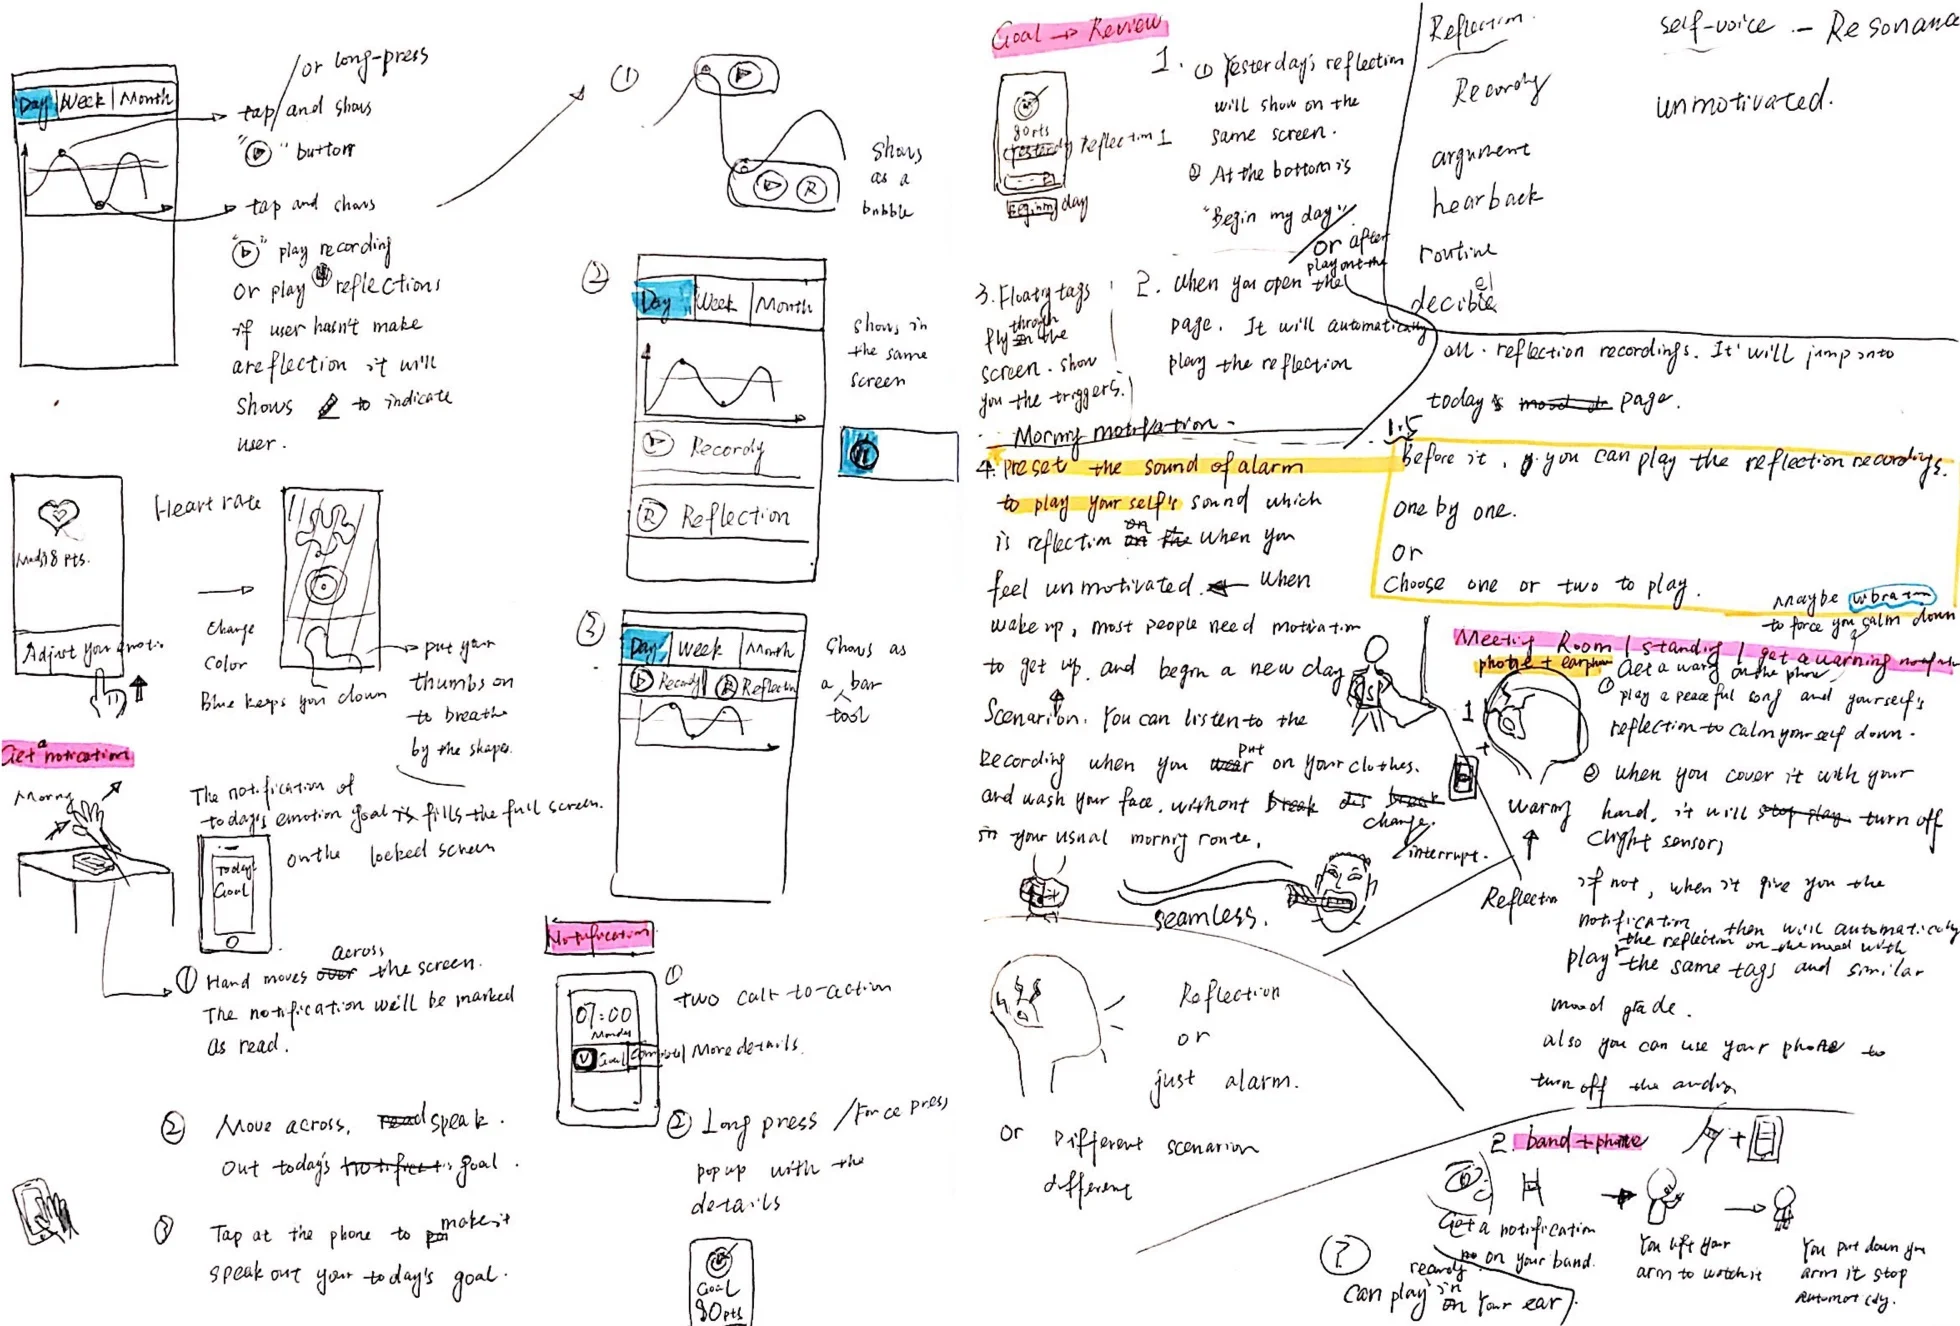 /or long-press
Day Week Month
tap/and shows
"▷" button
tap and shows
"▷" play recording
or play reflections
if user hasn't make
a reflection it will
shows to indicate
user.
①
shows
as a
bubble
R
②
Day Week Month
shows in
the same
screen
Recordy
R Reflection
③
Day Week Month
Recordy Reflectin
shows as
a bar
tool
Mood 18 pts.
Adjust your emoti
Heart rate
change
color
Blue keeps you down
put your
thumbs on
to breathe
by the shapes.
Get a notication
Morny
The notification of
today's emotion goal is fills the full screen.
on the locked screen
Today
Goal
① Hand moves over across the screen.
The notification we'll be marked
as read.
② Move across, read speak.
out today's goal.
③ Tap at the phone to make it
speak out your today's goal.
Notification
07:00
Monday
Goal Complete More details.
① two call-to-action
② Long press /Force press
pop up with the
details
Goal
80pts
Goal → Review
80pts
Yesterday Reflection 1
Begin my day
1. ① Yesterday's reflection
will show on the
same screen.
② At the bottom is
"Begin my day"
or after
play ont the
2. When you open the
page. It will automatically
play the reflection
3. Floaty tags
fly in through the
screen. show
you the triggers.
Reflection.
Recordy
argument
hearback
routine
decible
el
self-voice - Resonance
unmotivated.
all. reflection recordings. It will jump into
today's page.
Morny motivation -
4. Preset the sound of alarm
to play your self's sound which
is reflection on the when you
feel unmotivated. ← When
wake up, most people need motivation
to get up, and begin a new day
Scenarion. You can listen to the
Recording when you wear put on your clothes.
and wash your face. without break break
change.
in your usual mornig route.
/interrupt.
seamless.
1.5
Before it, you can play the reflection recordings.
one by one.
or
Choose one or two to play.
Maybe vibration
to force you calm down
Meeting Room / standing / get a warning
phone + earphone
1
① Get a warg on the phone
play a peaceful song and yourself's
reflection to calm yourself down.
② When you cover it with your
hand, it will stop play turn off
Clight sensor,
+
warmy
↑
Reflectin
if not, when it give you the
notification, then will automatically
the reflection on the mood with
play the same tags and similar
mood grade.
also you can use your phone to
turn off the audio
Reflection
or
just alarm.
or Different scenarion
different
2. band + phone
+
Get a notification
on your band.
You lift your
arm to watch it
You put down you
arm it stop
automaticly.
?
recordy
can play on in your ear).